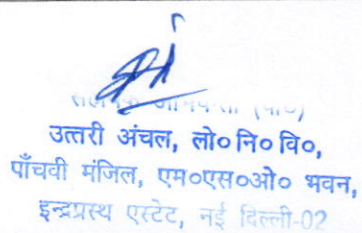 सहायक अभियन्ता (पी०)
उत्तरी अंचल, लो० नि० वि०,
पाँचवी मंजिल, एम०एस०ओ० भवन,
इन्द्रप्रस्थ एस्टेट, नई दिल्ली-02